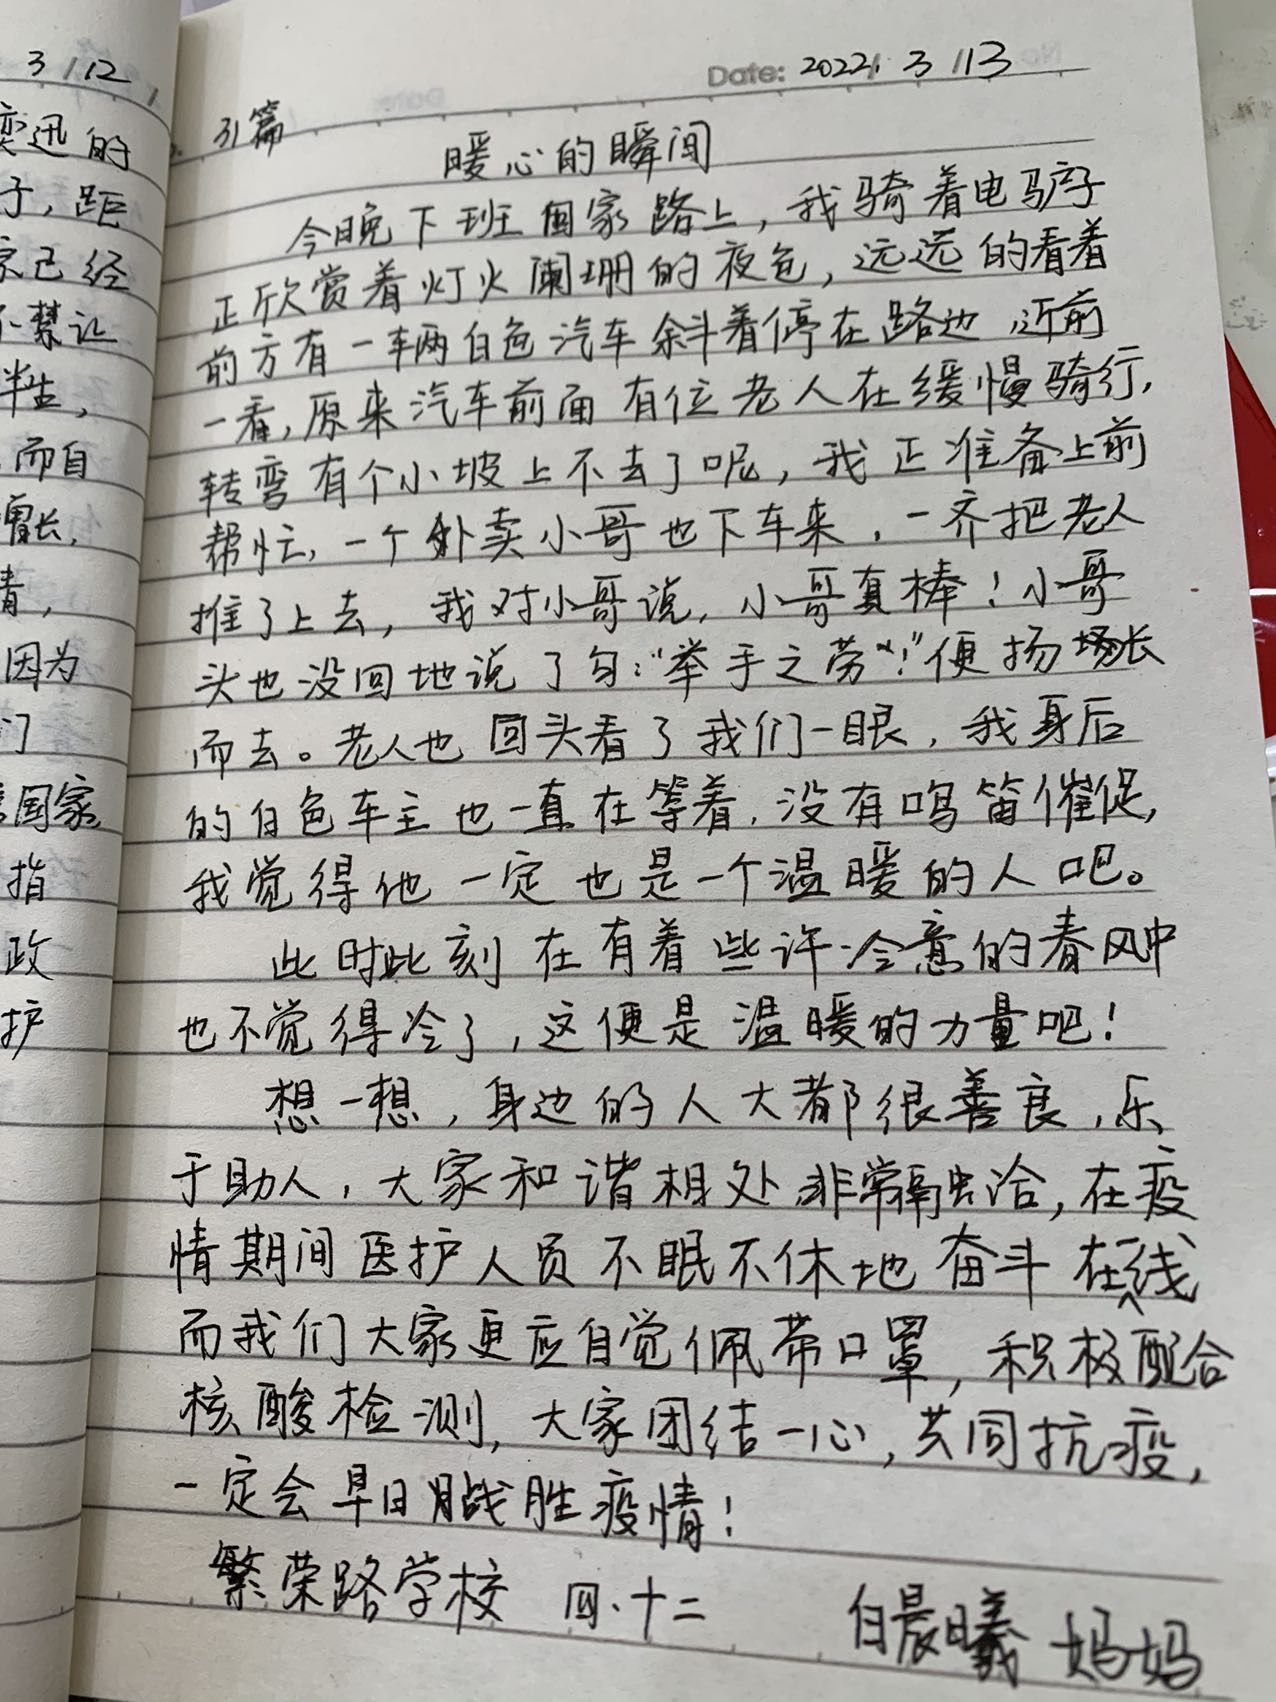 3/12
Date: 2022. 3/13
31篇
暖心的瞬间
今晚下班回家路上，我骑着电驴子
正欣赏着灯火阑珊的夜色，远远的看着
前方有一车两白色汽车斜着停在路边，近前
一看，原来汽车前面有位老人在缓慢骑行，
转弯有个小坡上不去了呢，我正准备上前
帮忙，一个外卖小哥也下车来，一齐把老人
推了上去，我对小哥说，小哥真棒！小哥
头也没回地说了句：“举手之劳“！”便扬长
而去。老人也回头看了我们一眼，我身后
的白色车主也一直在等着，没有鸣笛催促，
我觉得他一定也是一个温暖的人吧。
此时此刻在有着些许冷意的春风中
也不觉得冷了，这便是温暖的力量吧！
想一想，身边的人大都很善良，乐
于助人，大家和谐相处，非常融洽，在疫
情期间医护人员不眠不休地奋斗在一线
而我们大家更应自觉佩带口罩，积极配合
核酸检测，大家团结一心，共同抗疫，
一定会早日战胜疫情！
繁荣路学校 四·十二 白晨曦妈妈
迅的
子，距
家已经
不禁让
半生，
而自
增长，
情，
因为
门
国家
指
政
护